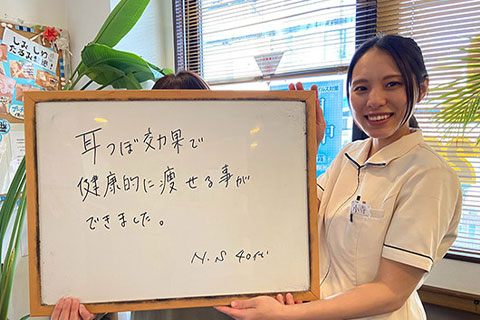 耳つぼ効果で
健康的に痩せる事が
できました。
N.S 40代
しみしわ